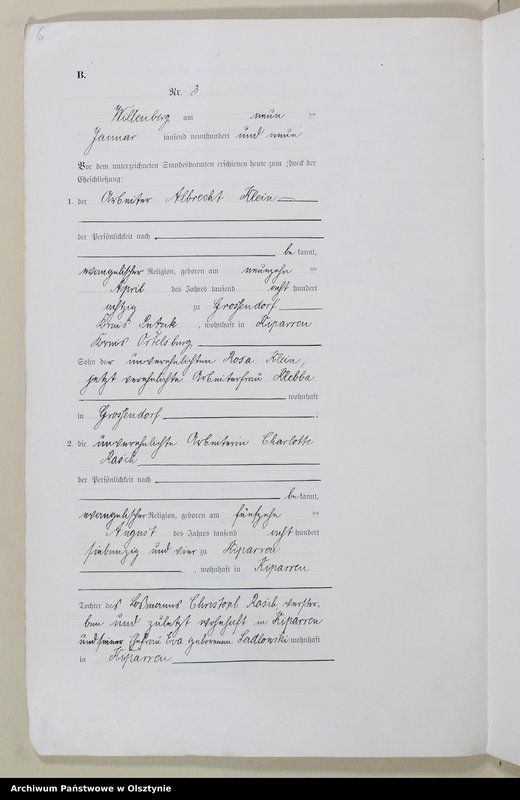 6
B.
Nr. 3
Willenberg am neun ten
Januar tausend neunhundert und neun
Vor dem unterzeichneten Standesbeamten erschienen heute zum Zweck der
Eheschließung:
1. der Arbeiter Albrecht Klein
der Persönlichkeit nach
be kannt,
evangelischer Religion, geboren am neunzehn ten
April des Jahres tausend acht hundert
achtzig zu Grossendorf
Kreis Putzik, wohnhaft in Kiparren
Kreis Ortelsburg,
Sohn der unverehelichten Rosa Klein,
jetzt verehelichte Arbeiterfrau
wohnhaft
in Grossendorf
2. die unverehelichte Arbeiterin Charlotte
Rasch
der Persönlichkeit nach
be kannt,
evangelischer Religion, geboren am fünfzehn ten
August des Jahres tausend acht hundert
siebunzig und vier zu Kiparren
, wohnhaft in Kiparren
Tochter des Losmanns Christoph Rasch, verstor-
ben und zuletzt wohnhaft in Kiparren
und seiner Ehefrau Eva geborenen Sadlowski wohnhaft
in Kiparren
Archiwum Państwowe w Olsztynie